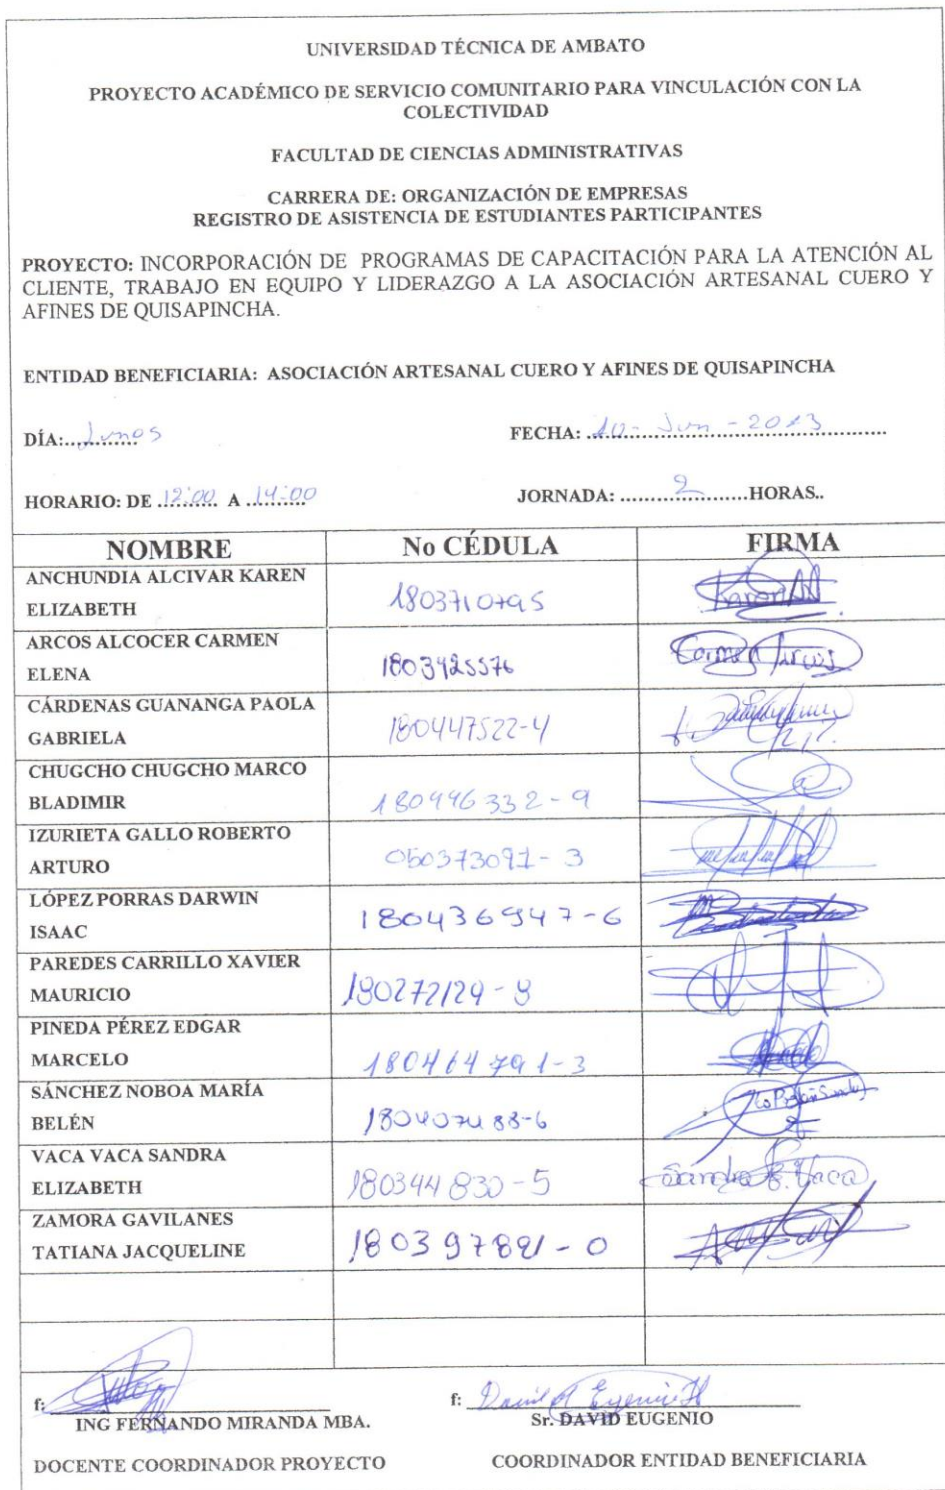 UNIVERSIDAD TÉCNICA DE AMBATO
PROYECTO ACADÉMICO DE SERVICIO COMUNITARIO PARA VINCULACIÓN CON LA
COLECTIVIDAD
FACULTAD DE CIENCIAS ADMINISTRATIVAS
CARRERA DE: ORGANIZACIÓN DE EMPRESAS
REGISTRO DE ASISTENCIA DE ESTUDIANTES PARTICIPANTES
PROYECTO: INCORPORACIÓN DE PROGRAMAS DE CAPACITACIÓN PARA LA ATENCIÓN AL
CLIENTE, TRABAJO EN EQUIPO Y LIDERAZGO A LA ASOCIACIÓN ARTESANAL CUERO Y
AFINES DE QUISAPINCHA.
ENTIDAD BENEFICIARIA: ASOCIACIÓN ARTESANAL CUERO Y AFINES DE QUISAPINCHA
DÍA: Lunes FECHA: 10 - Jun - 2013
HORARIO: DE 12:00 A 14:00 JORNADA: 2 HORAS..
NOMBRE No CÉDULA FIRMA
ANCHUNDIA ALCIVAR KAREN
ELIZABETH 1803710795
ARCOS ALCOCER CARMEN
ELENA 1803425576 Carmen Arcos
CÁRDENAS GUANANGA PAOLA
GABRIELA 180447522-4
CHUGCHO CHUGCHO MARCO
BLADIMIR 180446332-9
IZURIETA GALLO ROBERTO
ARTURO 050373091-3
LÓPEZ PORRAS DARWIN
ISAAC 180436947-6
PAREDES CARRILLO XAVIER
MAURICIO 180272129-8
PINEDA PÉREZ EDGAR
MARCELO 180464791-3
SÁNCHEZ NOBOA MARÍA
BELÉN 180407488-6
VACA VACA SANDRA
ELIZABETH 180344830-5 Sandra E. Vaca
ZAMORA GAVILANES
TATIANA JACQUELINE 180397891-0
f: f: David Eugenio
ING FERNANDO MIRANDA MBA. Sr. DAVID EUGENIO
DOCENTE COORDINADOR PROYECTO COORDINADOR ENTIDAD BENEFICIARIA